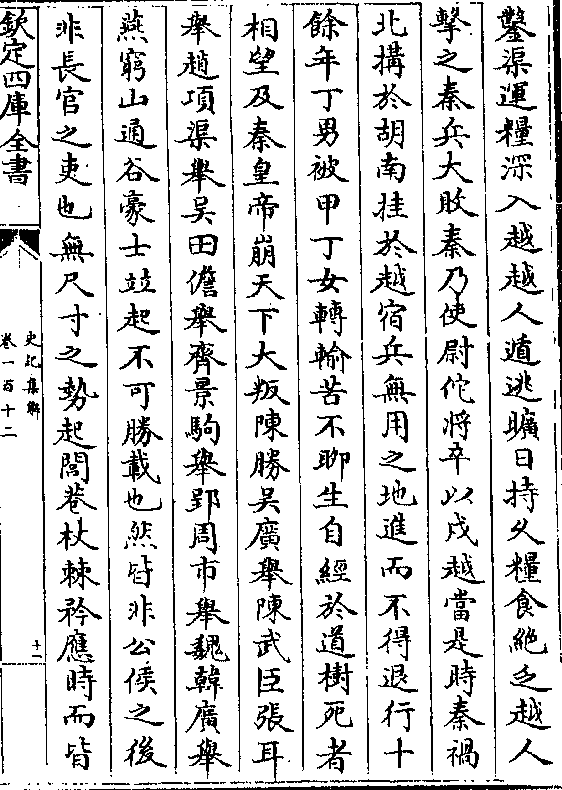 鑿渠運糧深入越越人遁逃曠日持久糧食絶乏越人
擊之秦兵大敗秦乃使尉佗將卒以戍越當是時秦禍
北搆於胡南挂於越宿兵無用之地進而不得退行十
餘年丁男被甲丁女轉輸苦不聊生自經於道樹死者
相望及秦皇帝崩天下大叛陳勝吳廣舉陳武臣張耳
舉趙項梁舉吳田儋舉齊景駒舉郢周市舉魏韓廣舉
燕窮山通谷豪士竝起不可勝載也然皆非公侯之後
非長官之吏也無尺寸之勢起閭巷杖棘矜應時而皆
欽定四庫全書
史記集解
卷一百十二
十一